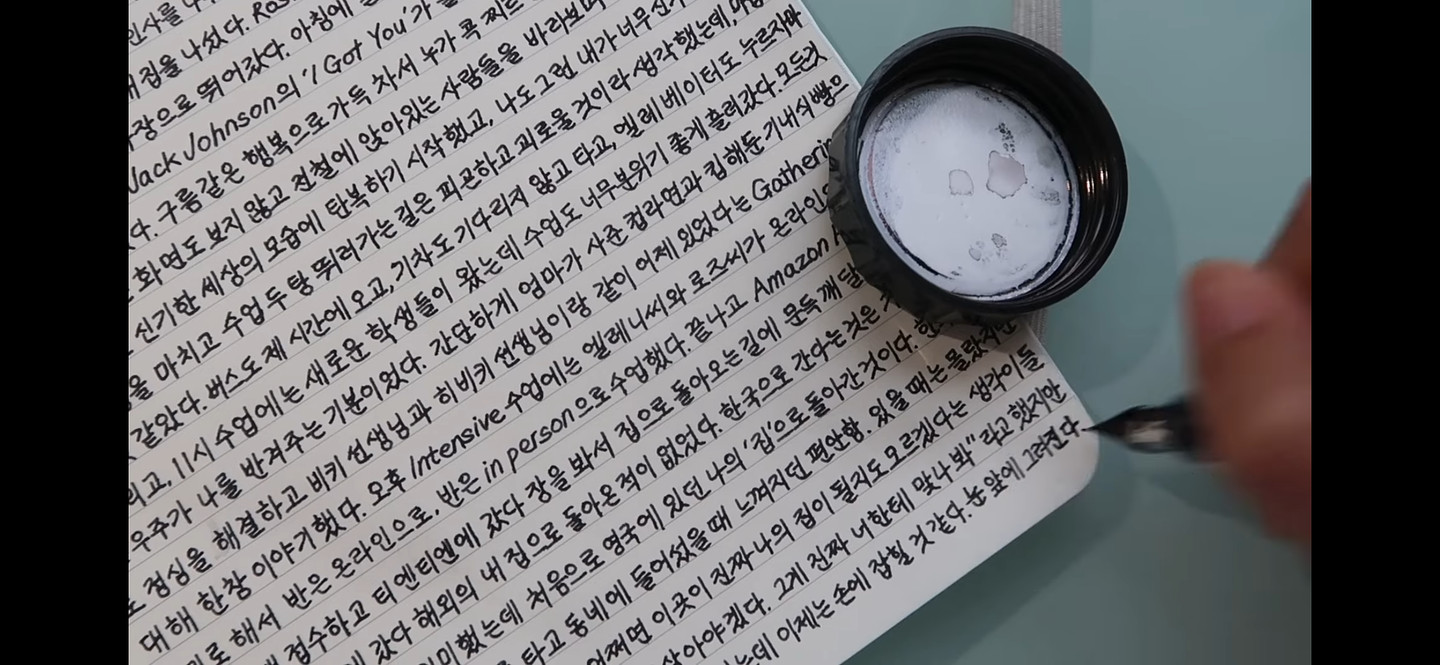 인사를
내 집을 나섰다. Ros
장으로 뛰어갔다. 아침에
Jack Johnson의 'I Got You'가
다. 구름같은 행복으로 가득 차서 누가 콕 찌르
화면도 보지 않고 전철에 앉아있는 사람들을 바라보며
신기한 세상의 모습에 탄복하기 시작했고, 나도 그런 내가 너무 신기
을 마치고 수업 두 탕 뛰러가는 길은 피곤하고 괴로울 것이라 생각했는데, 마법
같았다. 버스도 제 시간에 오고, 기차도 기다리지 않고 타고, 엘레베이터도 누르자마
리고, 11시 수업에는 새로운 학생들이 왔는데 수업도 너무 분위기 좋게 흘러갔다. 모든것
우주가 나를 반겨주는 기분이었다. 간단하게 엄마가 사준 컵라면과 킵해둔 기내식빵으
로 점심을 해결하고 비키 선생님과 히비키 선생님이랑 같이 어제 있었다는 Gatherin
대해 한창 이야기 했다. 오후 Intensive 수업에는 엘레니씨와 로즈씨가 온라인으
로 해서 반은 온라인으로, 반은 in person으로 수업했다. 끝나고 Amazon
접수하고 티엔티엔에 갔다 장을 봐서 집으로 돌아오는길에 문득 깨달
갔다 해외의 내 집으로 돌아온 적이 없었다. 한국으로 간다는 것은
의미했는데 처음으로 영국에 있던 나의 '집'으로 돌아간 것이다.
타고 동네에 들어섰을 때 느껴지던 편안함. 있을 때는 몰랐지만
어쩌면 이곳이 진짜 나의 집이 될지도 모르겠다는 생각이 들
살아야겠다. 그게 진짜 너한테 맞나 봐" 라고 했지만
는데 이제는 손에 잡힐 것 같다. 눈 앞에 그려진다.